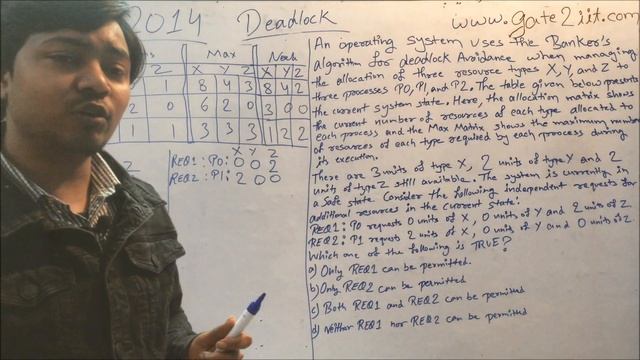 2014 Deadlock www.gate2iit.com
Max Need
Z X Y Z X Y Z
1 8 4 3 8 4 2
2 0 6 2 0 3 0 0
1 1 3 3 3 1 2 2
X Y Z
REQ1: P0: 0 0 2
REQ2: P1: 2 0 0
2
An operating system uses The Banker's
algorithm for deadlock Avoidance when managing
the allocation of three resource types X, Y, and Z to
three processes P0, P1, and P2. The table given below presents
the current system state. Here, the allocation matrix shows
the current number of resources of each type allocated to
each process and the Max Matrix shows the maximum number
of resources of each type required by each process during
its execution.
There are 3 units of type X, 2 units of type Y and 2
units of type Z still available. The system is currently in
a Safe state. Consider the following independent requests for
additional resources in the current state:
REQ1: P0 requests 0 units of X, 0 units of Y and 2 units of Z.
REQ2: P1 requests 2 units of X, 0 units of Y and 0 units of Z.
Which one of the following is TRUE?
a) Only REQ1 can be permitted.
b) Only REQ2 can be permitted
c) Both REQ1 and REQ2 can be permitted
d) Neither REQ1 nor REQ2 can be permitted